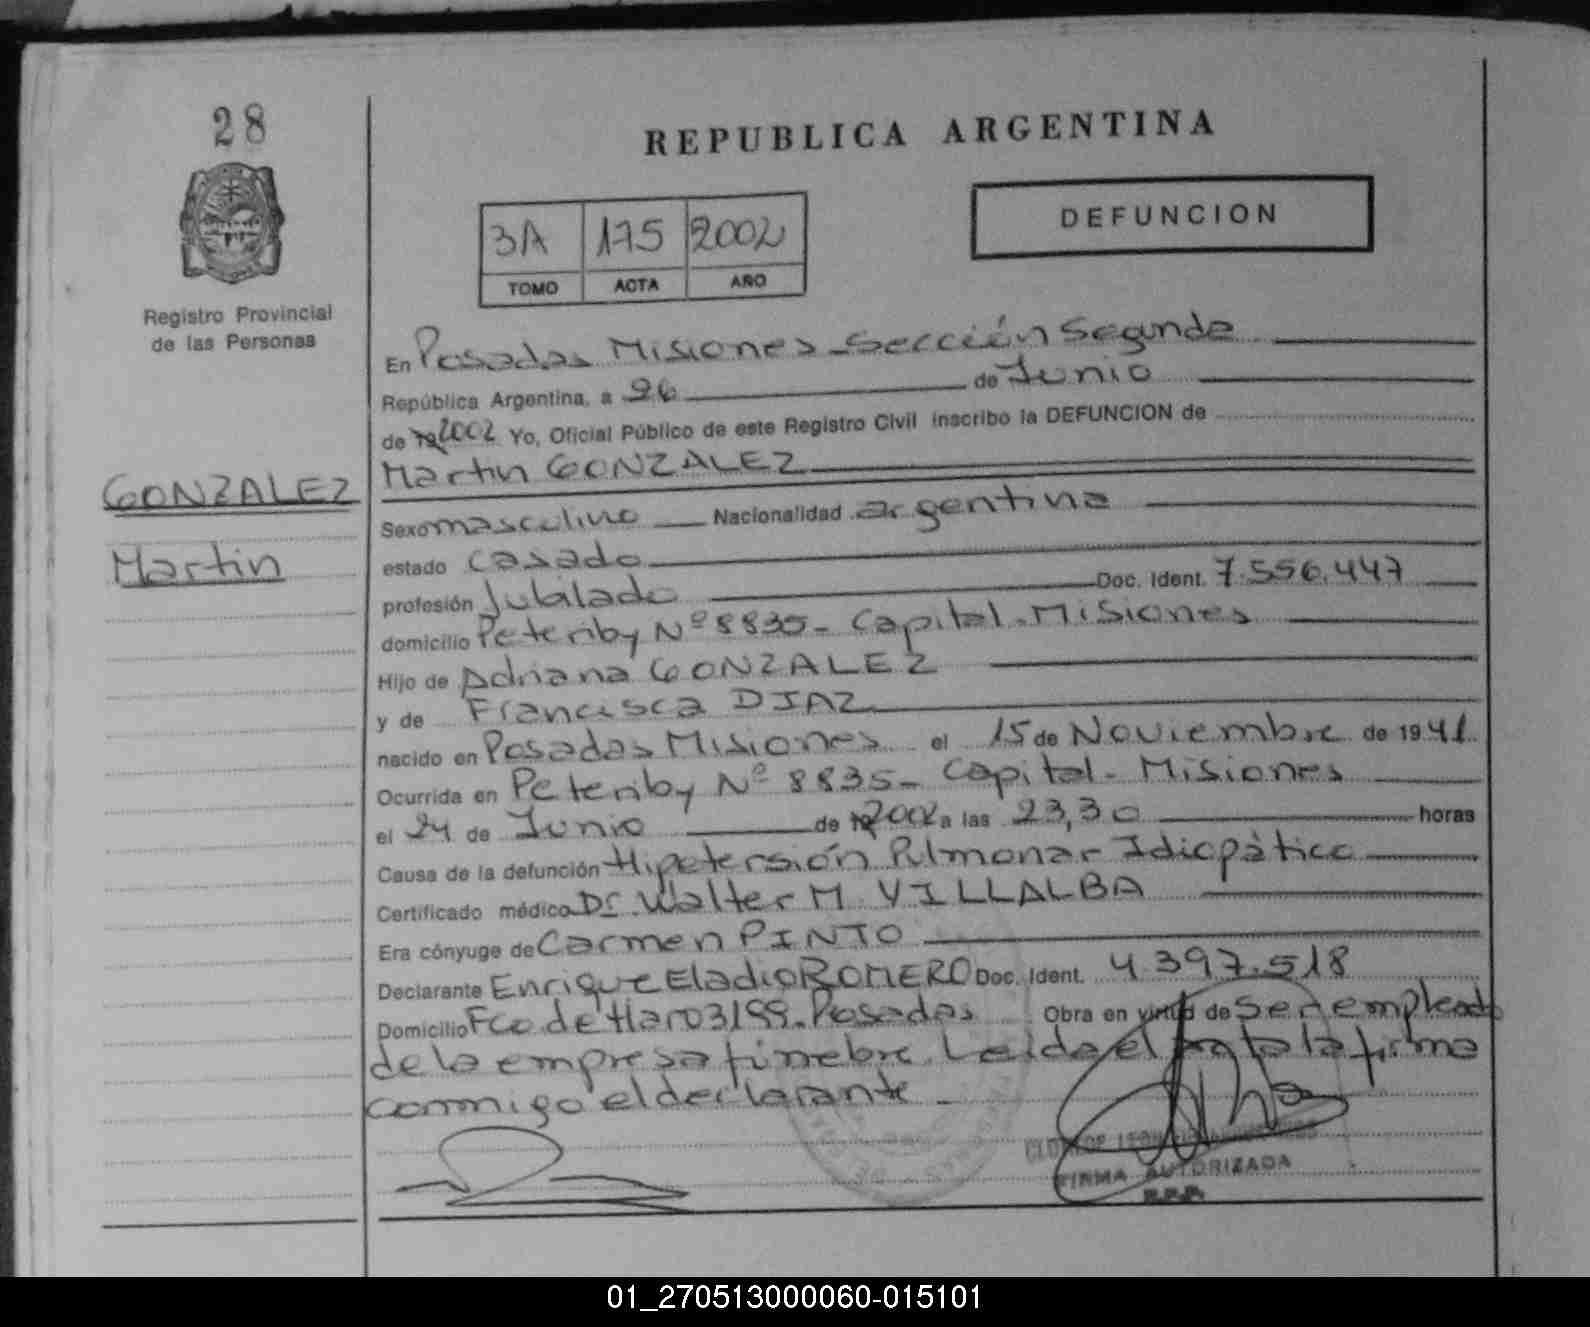 28
REPUBLICA ARGENTINA
DEFUNCION
3A 175 2002
TOMO ACTA AÑO
Registro Provincial
de las Personas
En Posadas Misiones Sección Segunda
República Argentina, a 26 de Junio
de 19 2002 Yo, Oficial Público de este Registro Civil inscribo la DEFUNCION de
Martin GONZALEZ
GONZALEZ
Martin
Sexo masculino Nacionalidad argentina
estado casado
profesión Jubilado Doc. Ident. 7.556.447
domicilio Peteriby Nº 8835- Capital-Misiones
Hijo de Adriana GONZALEZ
y de Francisca DIAZ
nacido en Posadas Misiones el 15 de Noviembre de 1941
Ocurrida en Peteriby Nº 8835- Capital- Misiones
el 24 de Junio de 19 2002 a las 23,30 horas
Causa de la defunción Hipetersión Pulmonar Idiopàtico
Certificado médico Dr. Walter M. VILLALBA
Era cónyuge de Carmen PINTO
Declarante Enrique Eladio ROMERO Doc. Ident. 4.397.518
Domicilio Fco. de Haro 3199- Posadas Obra en virtud de ser empleado
de la empresa fùnebre. Leida el acta la firma
conmigo el declarante
FIRMA AUTORIZADA
01_270513000060-015101